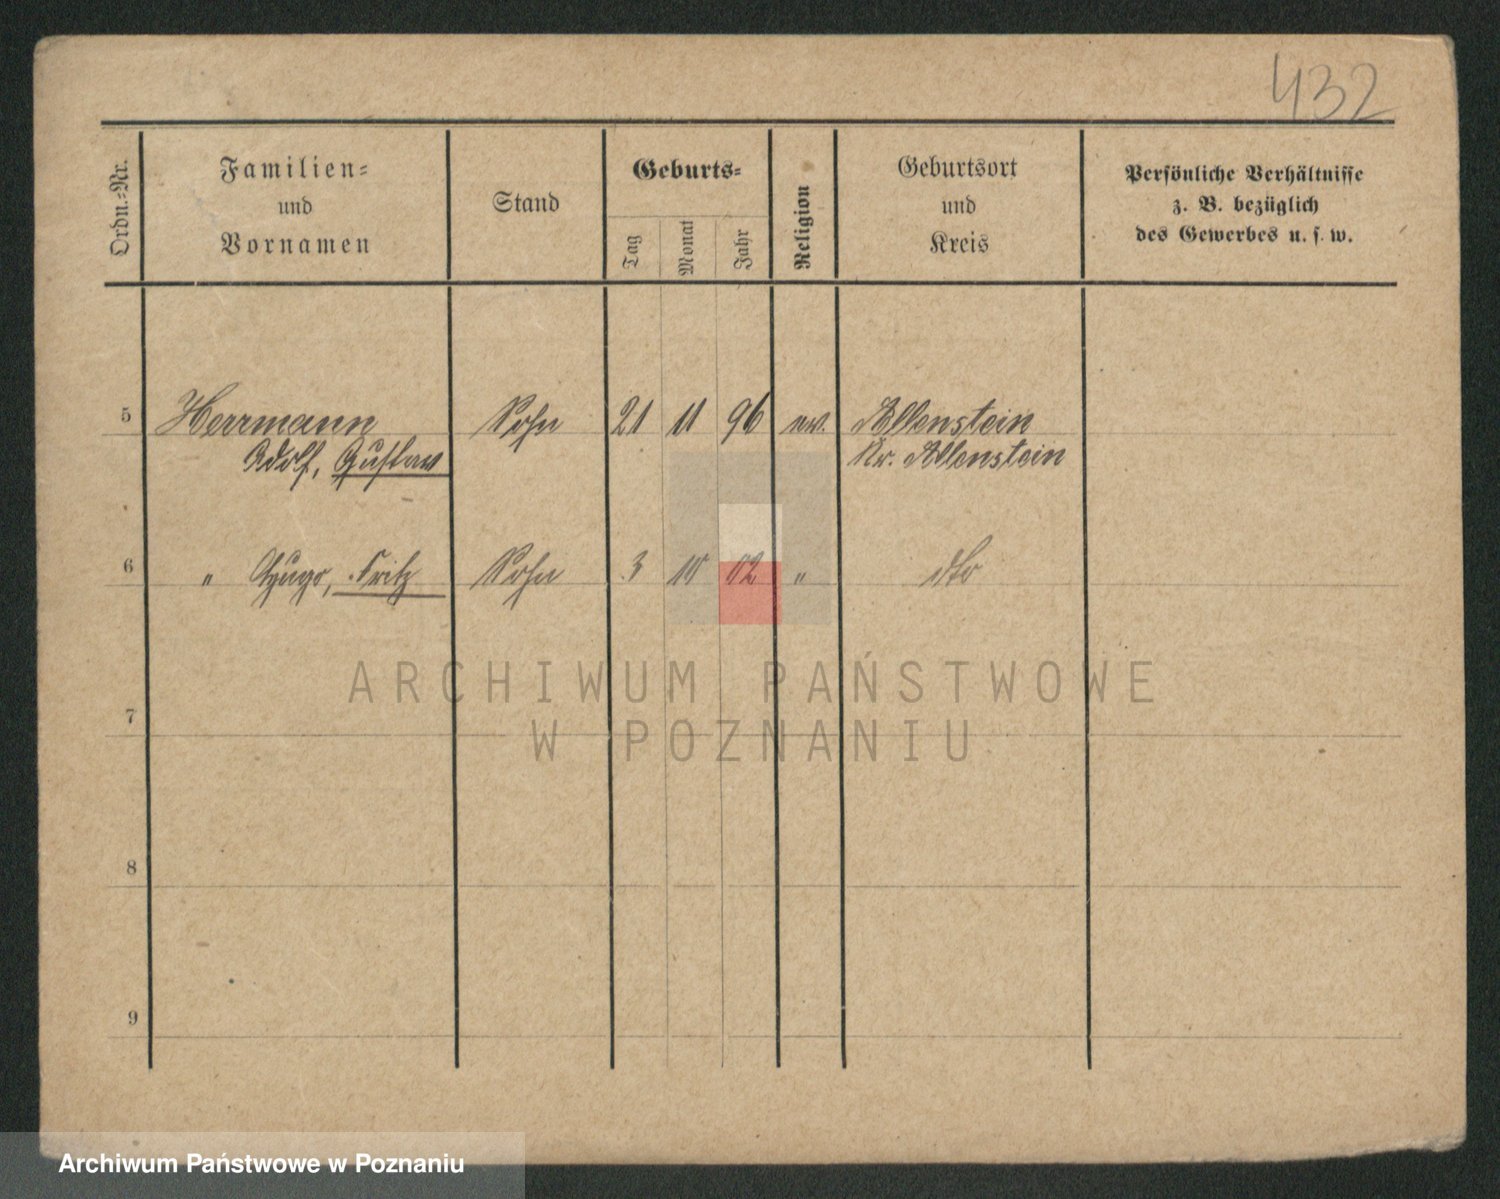 432
Ordn.-Nr.
Familien-
und
Vornamen
Stand
Geburts-
Tag
Monat
Jahr
Religion
Geburtsort
und
Kreis
Persönliche Verhältnisse
z. B. bezüglich
des Gewerbes u. s. w.
5 Herrmann Sohn 21 11 96 ev. Allenstein
Adolf, Gustav Kr. Allenstein
6 " Hugo, Fritz Sohn 3 10 02 " dto
ARCHIWUM PAŃSTWOWE
7
W POZNANIU
8
9
Archiwum Państwowe w Poznaniu